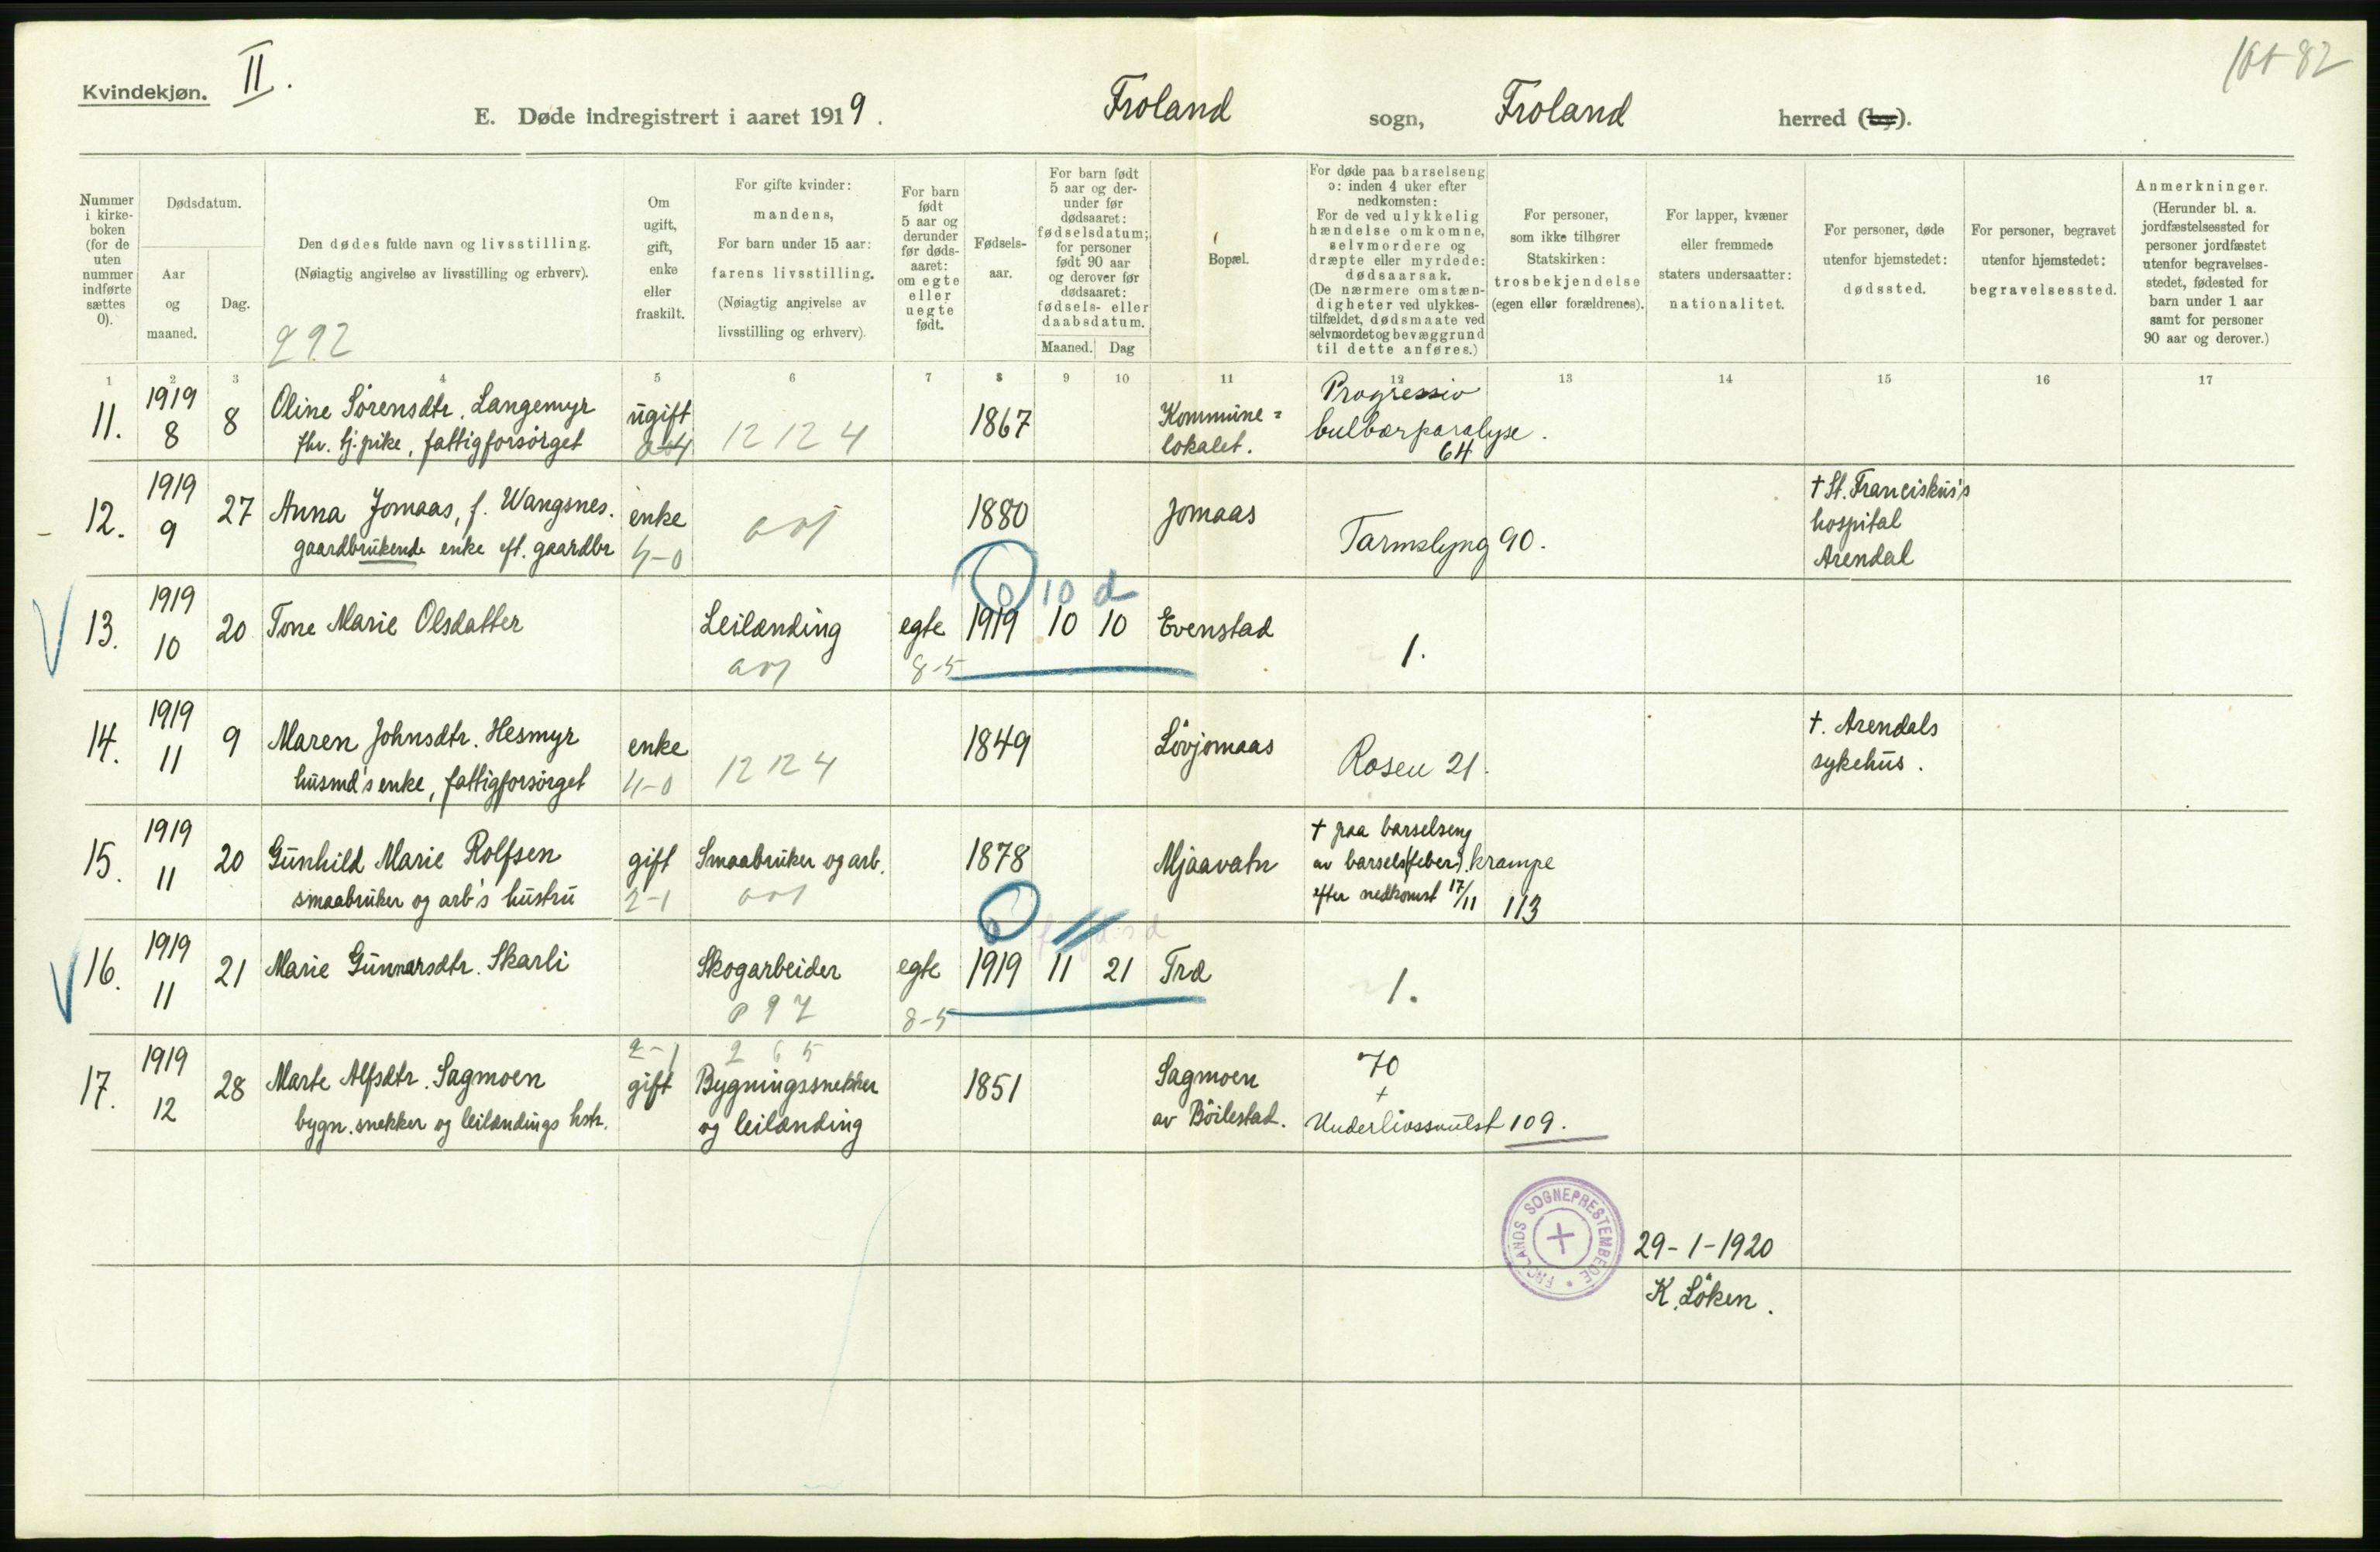 Kvindekjøn. II.
E. Døde indregistrert i aaret 1919. Froland sogn, Froland herred (by).
Nummer i kirkeboken (for de uten nummer indførte sættes 0).
Dødsdatum.
Aar og maaned.
Dag.
Den dødes fulde navn og livsstilling.
(Nøiagtig angivelse av livsstilling og erhverv).
292
Om ugift, gift, enke eller fraskilt.
For gifte kvinder:
mandens,
For barn under 15 aar:
farens livsstilling.
(Nøiagtig angivelse av
livsstilling og erhverv).
For barn født 5 aar og derunder før dødsaaret: om egte eller uegte født.
Fødsels-
aar.
For barn født
5 aar og der-
under før
dødsaaret:
fødselsdatum;
for personer
født 90 aar
og derover før
dødsaaret:
fødsels- eller
daabsdatum.
Maaned. Dag
Bopæl.
For døde paa barselseng
ɔ: inden 4 uker efter
nedkomsten:
For de ved ulykkelig
hændelse omkomne,
selvmordere og
dræpte eller myrdede:
dødsaarsak.
(De nærmere omstæn-
digheter ved ulykkes-
tilfældet, dødsmaate ved
selvmordet og bevæggrund
til dette anføres.)
For personer,
som ikke tilhører
Statskirken:
trosbekjendelse
(egen eller forældrenes).
For lapper, kvæner
eller fremmede
staters undersaatter:
nationalitet.
For personer, døde
utenfor hjemstedet:
dødssted.
For personer, begravet
utenfor hjemstedet:
begravelsessted.
Anmerkninger.
(Herunder bl. a.
jordfæstelsessted for
personer jordfæstet
utenfor begravelses-
stedet, fødested for
barn under 1 aar
samt for personer
90 aar og derover.)
1 2 3 4 5 6 7 8 9 10 11 12 13 14 15 16 17
11. 1919 8 8 Oline Sørensdtr. Langemyr ugift 1867 Kommune= Progressiv
fhv. tj.pike, fattigforsørget 12 12 4 lokalet. bulbærparalyse. 64
12. 1919 9 27 Anna Jomaas, f. Wangsnes. enke 1880 Jomaas Tarmslyng 90. † St. Franciskus's
gaardbrukende enke eft. gaardbr 4-0 hospital
Arendal
0 10 d
13. 1919 10 20 Tone Marie Olsdatter Leilænding egte 1919 10 10 Evenstad 1.
8-5
14. 1919 11 9 Maren Johnsdtr. Hesmyr enke 1849 Løvjomaas Rosen 21. †. Arendals
husmd's enke, fattigforsørget 4-0 12 12 4 sykehus.
15. 1919 11 20 Gunhild Marie Rolfsen gift Smaabruker og arb. 1878 Mjaavatn † paa barselseng
smaabruker og arb's hustru 2-1 av barsels(feber). krampe
efter nedkomst 17/11 113
16. 1919 11 21 Marie Gunnarsdtr. Skarli Skogarbeider egte 1919 11 21 Træ 1.
8-5
2-1
17. 1919 12 28 Marte Alfsdtr. Sagmoen gift Bygningssnekker 1851 Sagmoen 70
+
bygn.snekker og leilændings hstr. og leilænding av Bøilestad. Underlivssvulst 109.
FROLANDS SOGNEPRESTEMBEDE
29-1-1920
K. Løken.